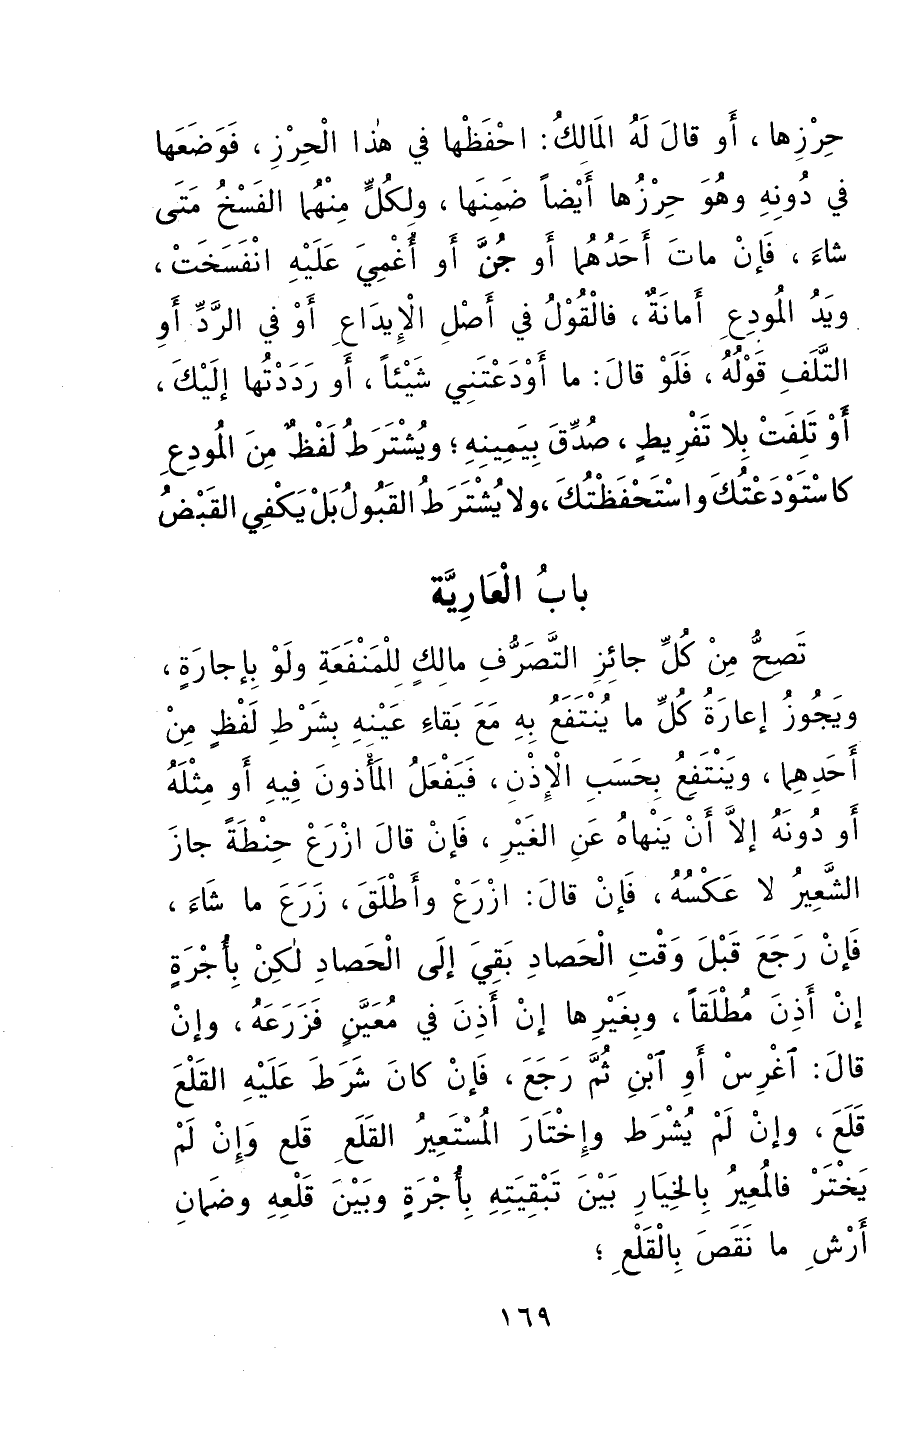 حِرْزِها ، أَو قالَ لَهُ المَالِكُ : احْفَظْها في هٰذا الْحِرْزِ ، فَوَضَعَها
في دُونِهِ وهُوَ حِرْزُها أَيْضاً ضَمِنَها ، ولِكُلٍّ مِنْهُما الفَسْخُ مَتَى
شاءَ ، فَإنْ ماتَ أَحَدُهُما أو جُنَّ أو أُغْمِيَ عَلَيْهِ انْفَسَخَتْ ،
ويَدُ المُودِعِ أَمانَةٌ ، فالْقُوْلُ في أَصْلِ الْإيدَاعِ أَوْ في الرَّدِّ أَوِ
التَّلَفِ قَوْلُهُ ، فَلَوْ قالَ : ما أَوْدَعْتَني شَيْئاً ، أَو رَدَدْتُها إلَيْكَ ،
أَوْ تَلِفَتْ بِلا تَفْريطٍ ، صُدِّقَ بِيَمِينِهِ ؛ ويُشْتَرَطُ لَفْظٌ مِنَ المُودِعِ
كاسْتَوْدَعْتُكَ واسْتَحْفَظْتُكَ ، ولا يُشْتَرَطُ القَبُولُ بَلْ يَكْفِي القَبْضُ
بابُ الْعَارِيَّة
تَصِحُّ مِنْ كُلِّ جائِزِ التَّصَرُّفِ مالِكٍ لِلْمَنْفَعَةِ ولَوْ بِإجارَةٍ ،
ويَجُوزُ إعارَةُ كُلِّ ما يُنْتَفَعُ بِهِ مَعَ بَقاءِ عَيْنِهِ بِشَرْطِ لَفْظٍ مِنْ
أَحَدِهِما ، ويَنْتَفِعُ بِحَسَبِ الْإذْنِ ، فَيَفْعَلُ المَأْذونَ فِيهِ أَو مِثْلَهُ
أَو دُونَهُ إلاَّ أَنْ يَنْهاهُ عَنِ الغَيْرِ ، فَإنْ قالَ ازْرَعْ حِنْطَةً جازَ
الشَّعِيرُ لا عَكْسُهُ ، فَإنْ قالَ : ازْرَعْ وأَطْلَقَ ، زَرَعَ ما شَاءَ ،
فَإنْ رَجَعَ قَبْلَ وَقْتِ الْحَصادِ بَقِيَ إلَى الْحَصادِ لٰكِنْ بِأُجْرَةٍ
إنْ أَذِنَ مُطْلَقاً ، وبِغَيْرِها إنْ أَذِنَ في مُعَيَّنٍ فَزَرَعَهُ ، وإنْ
قالَ : ٱغْرِسْ أَوِ ٱبْنِ ثُمَّ رَجَعَ ، فَإنْ كانَ شَرَطَ عَلَيْهِ القَلْعَ
قَلَعَ ، وإنْ لَمْ يُشْرَط وإخْتَارَ المُسْتَعِيرُ القَلَعِ قَلع وَإنْ لَمْ
يَخْتَرْ فالمُعِيرُ بِالخِيَارِ بَيْنَ تَبْقِيَتِهِ بِأُجْرَةٍ وبَيْنَ قَلْعِهِ وضَمانِ
أَرْشِ ما نَقَصَ بِالْقَلْعِ ؛
١٦٩